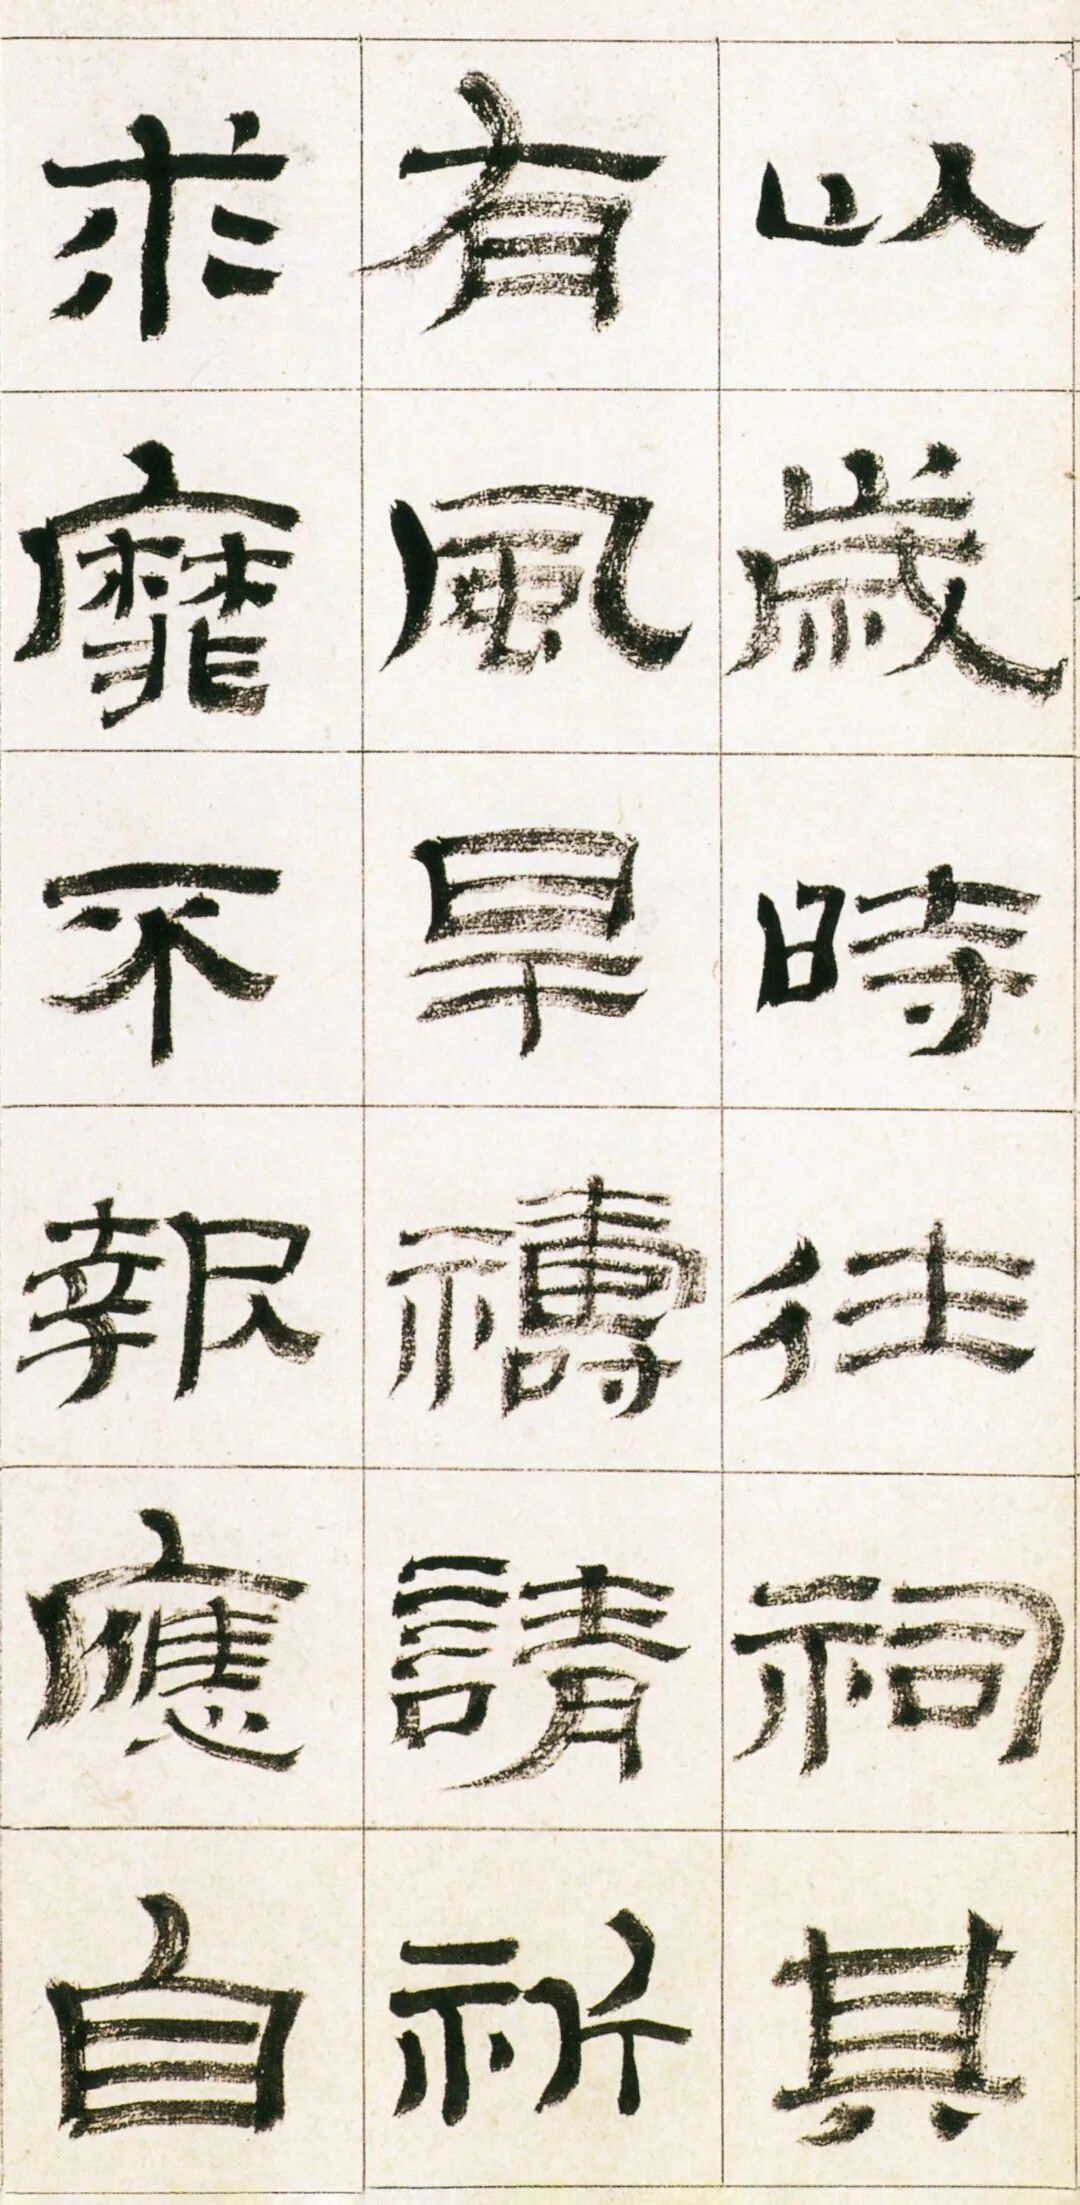 以歲時往祠其
有風旱禱請祈
求靡不報應自